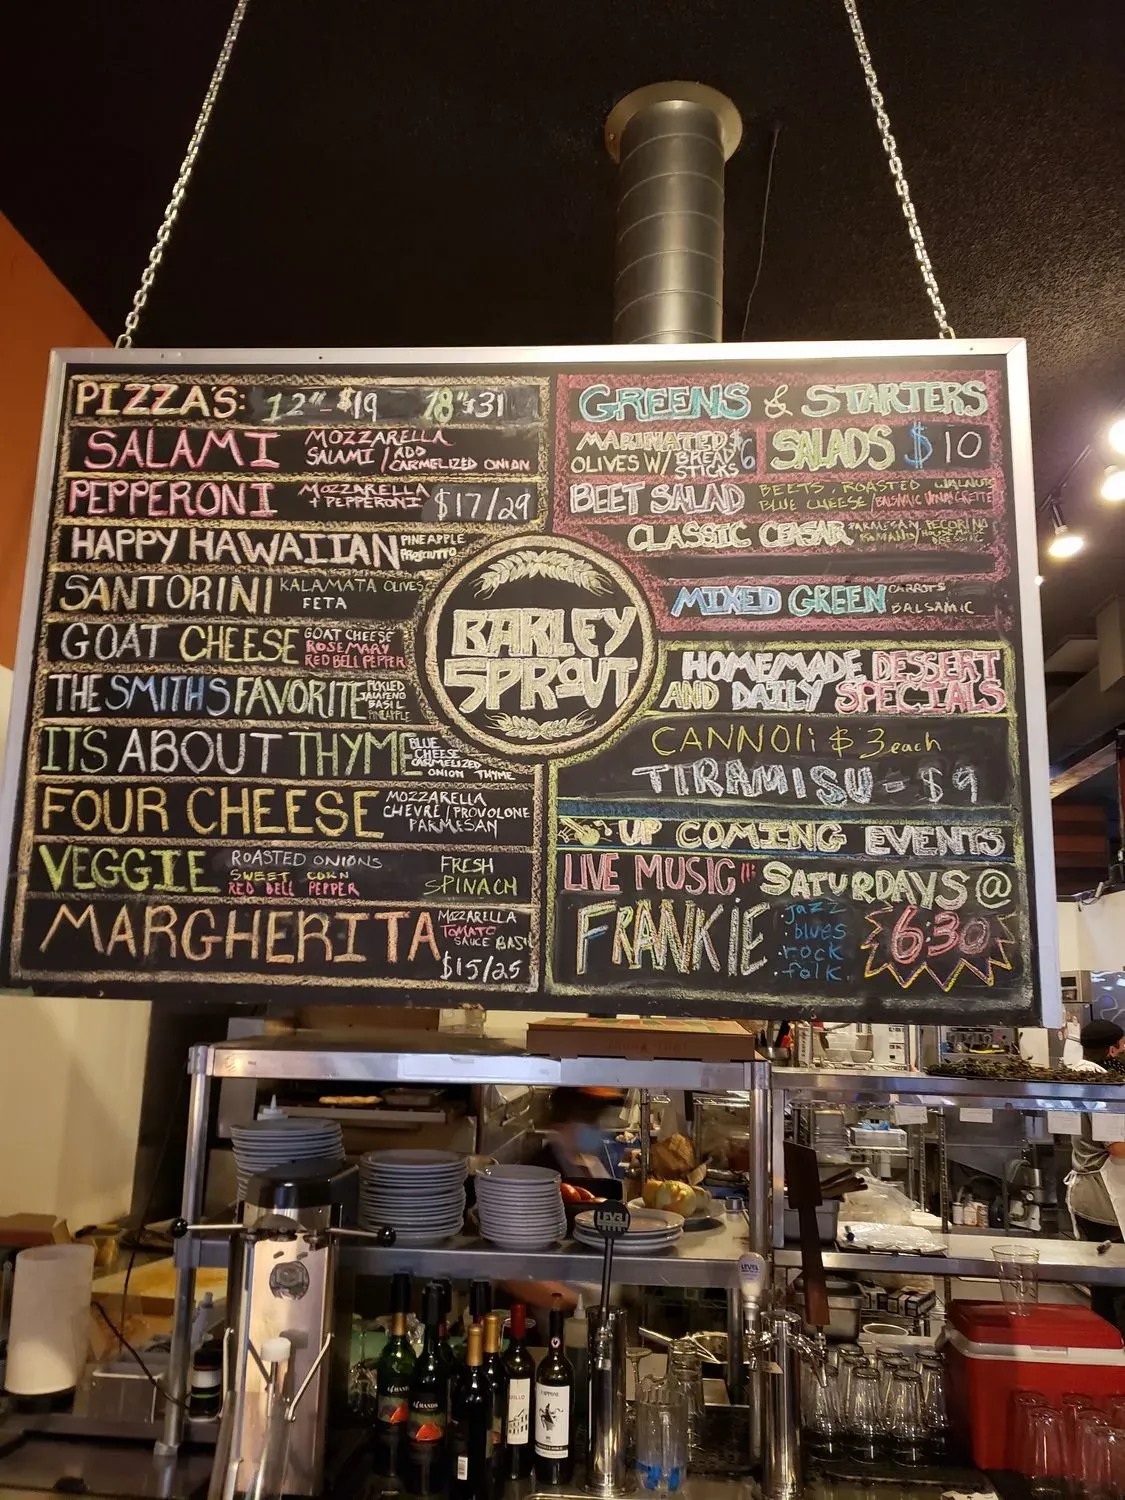 PIZZA'S: 12"-$19 18"$31
SALAMI
MOZZARELLA
SALAMI / ADD
CARMELIZED ONION
PEPPERONI
MOZZARELLA
+ PEPPERONI
$17/29
HAPPY HAWAIIAN
PINEAPPLE
PROSCIUTTO
SANTORINI
KALAMATA OLIVES
FETA
GOAT CHEESE
GOAT CHEESE
ROSEMARY
RED BELL PEPPER
THE SMITHS FAVORITE
PICKLED
JALAPENO
BASIL
PINEAPPLE
IT'S ABOUT THYME
BLUE
CHEESE
CARMELIZED
ONION THYME
FOUR CHEESE
MOZZARELLA
CHEVRE / PROVOLONE
PARMESAN
VEGGIE
ROASTED ONIONS
SWEET CORN
RED BELL PEPPER
FRESH
SPINACH
MARGHERITA
MOZZARELLA
TOMATO
SAUCE BASIL
$15/25
BARLEY
SPROUT
GREENS & STARTERS
MARINATED
OLIVES W/ BREAD
STICKS
$6
SALADS $10
BEET SALAD
BEETS, ROASTED WALNUTS
BLUE CHEESE BALSAMIC VINAIGRETTE
CLASSIC CEASAR
PARMESAN PECORINO
ROMANO
MIXED GREEN
CARROTS
BALSAMIC
HOMEMADE DESSERT
AND DAILY SPECIALS
CANNOLI $3 each
TIRAMISU - $9
UP COMING EVENTS
LIVE MUSIC!! SATURDAYS @
FRANKIE
jazz
blues
rock
folk
6:30
LEVEL
LEVEL